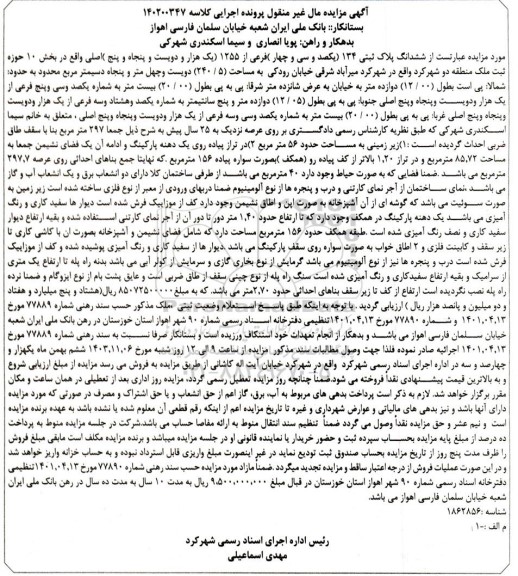 آگهی مزایده مال غیر منقول پرونده اجرایی کلاسه ۱۴۰۲۰۰۳۴۷
بستانکار:: بانک ملی ایران شعبه خیابان سلمان فارسی اهواز
بدهکار و راهن: پویا انصاری و سیما اسکندری شهرکی
مورد مزایده عبارتست از ششدانگ پلاک ثبتی ۱۳۴ (یکصد و سی و چهار )فرعی از ۱۲۵۵ (یک هزار و دویست و پنجاه و پنج )اصلی واقع در بخش ۱۰ حوزه
ثبت ملک منطقه دو شهرکرد واقع در شهرکرد میرآباد شرقی خیابان رودکی به مساحت (۵ / ۲۴۰) دویست وچهل متر و پنجاه دسیمتر مربع محدود به حدود:
شمالا: پی است بطول (۰۰ / ۱۲) دوازده متر به خیابان به عرض شانزده متر شرقا: پی به پی بطول (۰۰ / ۲۰) بیست متر به شماره یکصد وسی وپنج فرعی از
یک هزار ودویست وپنجاه وپنج اصلی جنوبا: پی به پی بطول (۰۵ / ۱۲) دوازده متر و پنج سانتیمتر به شماره یکصد وهشتاد وسه فرعی از یک هزار ودویست
وپنجاه وپنج اصلی غربا: پی به پی بطول (۰۰ / ۲۰) بیست متر به شماره یکصد وسی وسه فرعی از یک هزار ودویست وپنجاه وپنج اصلی ، متعلق به خانم سیما
اسکندری شهرکی که طبق نظریه کارشناس رسمی دادگستری بر روی عرصه نزدیک به ۲۵ سال پیش به شرح ذیل جمعا ۲۹۷ متر مربع بنا با سقف طاق
ضربی احداث گردیده است :۱)زیر زمینی به مساحت حدود ۵۶ متر مربع ۲)در تراز پیاده روی یک دهنه پارکینگ و ادامه آن یک فضای نشیمن جمعا به
مساحت ۸۵،۷۲ مترمربع و در تراز ۱،۲۰ بالاتر از کف پیاده رو (همکف )بصورت سواره پیاده ۱۵۶ مترمربع .که نهایتا جمع بناهای احداثی روی عرصه ۲۹۷،۷
مترمربع می باشد .ضمنا فضایی که به صورت حیاط وجود دارد ۴۰ مترمربع می باشد از طرفی ساختمان کلا دارای دو انشعاب برق و یک انشعاب آب و گاز
می باشد .نمای ساختمان از آجر نمای کارتنی و درب و پنجره ها از نوع آلومینیوم ضمنا دربهای ورودی از معبر از نوع فلزی ساخته شده است زیر زمین به
صورت سوئیت می باشد که گوشه ای از آن آشپزخانه به صورت اپن و اطاق نشیمن وجود دارد کف از موزاییک فرش شده است دیوار ها سفید کاری و رنگ
آمیزی می باشد یک دهنه پارکینگ در همکف وجود دارد که تا ارتفاع حدود ۱،۴۰ متر دور تا دور آن از آجر نمای کارتنی استفاده شده و بقیه ارتفاع دیوار
سفید کاری و نصف رنگ آمیزی شده است .طبقه همکف حدود ۱۵۶ مترمربع مساحت دارد که شامل فضای نشیمن و آشپزخانه بصورت اپن با کاشی کاری تا
زیر سقف و کابینت فلزی و ۲ اطاق خواب به صورت سواره روی سقف پارکینگ می باشد .دیوار ها از سفید کاری و رنگ آمیزی پوشیده شده و کف از موزاییک
فرش شده است درب و پنجره ها نیز از نوع آلومینیوم می باشد گرمایش از نوع بخاری گازی و سرمایش از کولر آبی می باشد بدنه راه پله تا ارتفاع یک متری
از سرامیک و بقیه ارتفاع سفیدکاری و رنگ آمیزی شده است سنگ راه پله از نوع چینی سقف از طاق ضربی است و عایق پشت بام از نوع ایزوگام و ضمنا نرده
راه پله نصب نگردیده است ارتفاع از کف تا زیر سقف بناهای احداثی حدود ۲،۷۰متر می باشد. که به مبلغ ۸۵۰۷۲۵۰۰۰۰۰ ریال(هشتاد و پنج میلیارد و هفتاد
و دو میلیون و پانصد هزار ریال )ارزیابی گردید .با توجه به اینکه طبق پاسخ استعلام وضعیت ثبتی ملک مذکور حسب سند رهنی شماره ۷۷۸۸۹ مورخ
۱۴۰۱،۰۴،۱۳ و شماره ۷۷۸۹۰ مورخ ۱۴۰۱،۰۴،۱۳تنظیمی دفترخانه اسناد رسمی شماره ۹۰ شهر اهواز استان خوزستان در رهن بانک ملی ایران شعبه
خیابان سلمان فارسی اهواز می باشد و بدهکار از انجام تعهدات خود استنکاف ورزیده است و بستانکار صرفا نسبت به سند رهنی شماره ۷۷۸۸۹ مورخ
۱۴۰۱،۰۴،۱۳ اجرائیه صادر نموده فلذا جهت وصول مطالبات سند مذکور مزایده از ساعت ۹ الی ۱۲ روز شنبه مورخ ۱۴۰۳،۱۱،۰۶ ششم بهمن ماه یکهزار و
چهارصد و سه در اداره اجرای اسناد رسمی شهرکرد واقع در شهرکرد خیابان آیت اله کاشانی از طریق مزایده به فروش می رسد مزایده از مبلغ ارزیابی شروع
و به بالاترین قیمت پیشنهادی نقدا فروخته می شود.ضمنا چنانچه روز مزایده تعطیل رسمی گردد، مزایده روز اداری بعد از تعطیلی در همان ساعت و مکان
مقرر برگزار خواهد شد. لازم به ذکر است پرداخت بدهی های مربوط به آب، برق، گاز اعم از حق انشعاب و یا حق اشتراک و مصرف در صورتی که مورد مزایده
دارای آنها باشد و نیز بدهی های مالیاتی و عوارض شهرداری و غیره تا تاریخ مزایده اعم از اینکه رقم قطعی آن معلوم شده یا نشده باشد به عهده برنده مزایده
است و نیم عشر و حق مزایده نقداً وصول می گردد ضمناً تنظیم سند انتقال منوط به ارائه مفاصا حساب می باشد.شرکت در جلسه مزایده منوط به پرداخت
ده درصد از مبلغ پایه مزایده بحساب سپرده ثبت و حضور خریدار یا نماینده قانونی او در جلسه مزایده میباشد و برنده مزایده مکلف است مابقی مبلغ فروش
را ظرف مدت پنج روز از تاریخ مزایده بحساب صندوق ثبت تودیع نماید در غیر اینصورت مبلغ واریزی قابل استرداد نبوده و به حساب خزانه واریز خواهد شد
و در این صورت عملیات فروش از درجه اعتبار ساقط و مزایده تجدید میگردد .ضمنا مازاد مورد مزایده حسب سند رهنی شماره ۷۷۸۹۰ مورخ ۱۴۰۱،۰۴،۱۳تنظیمی
دفترخانه اسناد رسمی شماره ۹۰ شهر اهواز استان خوزستان در قبال مبلغ ۹،۵۰۰،۰۰۰،۰۰۰ ریال به مدت ۱۰ سال به مدت ده سال در رهن بانک ملی ایران
شعبه خیابان سلمان فارسی اهواز می باشد.
شناسه :۱۸۶۲۸۵۶
م الف :۱۰-
رئیس اداره اجرای اسناد رسمی شهرکرد
مهدی اسماعیلی